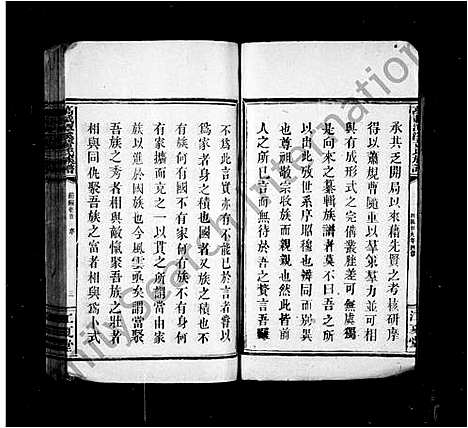 承其乏開局以來藉先賢之考核研摩
得以蕭規曹隨重以羣策羣力並可相
與有成形式之完備叢脞差可無虞獨
是向來之纂輯族譜者莫不曰吾之所
以由此攷世系序昭穆也辨同而別異
也尊祖敬宗收族而親親也然此皆前
人之所已言而無待於吾之贅言吾雖
不爲此言實亦有不能已於言者嘗以
爲家者身之積也國者又族之積也不
有族何有國不有家何有族不有身何
有家擴而充之一以貫之所謂當由家
族以進於國族也今風雲亟矣謂當聚
吾族之秀者相與敵愾聚吾族之壯者
相與同仇聚吾族之富者相與爲卜式
三